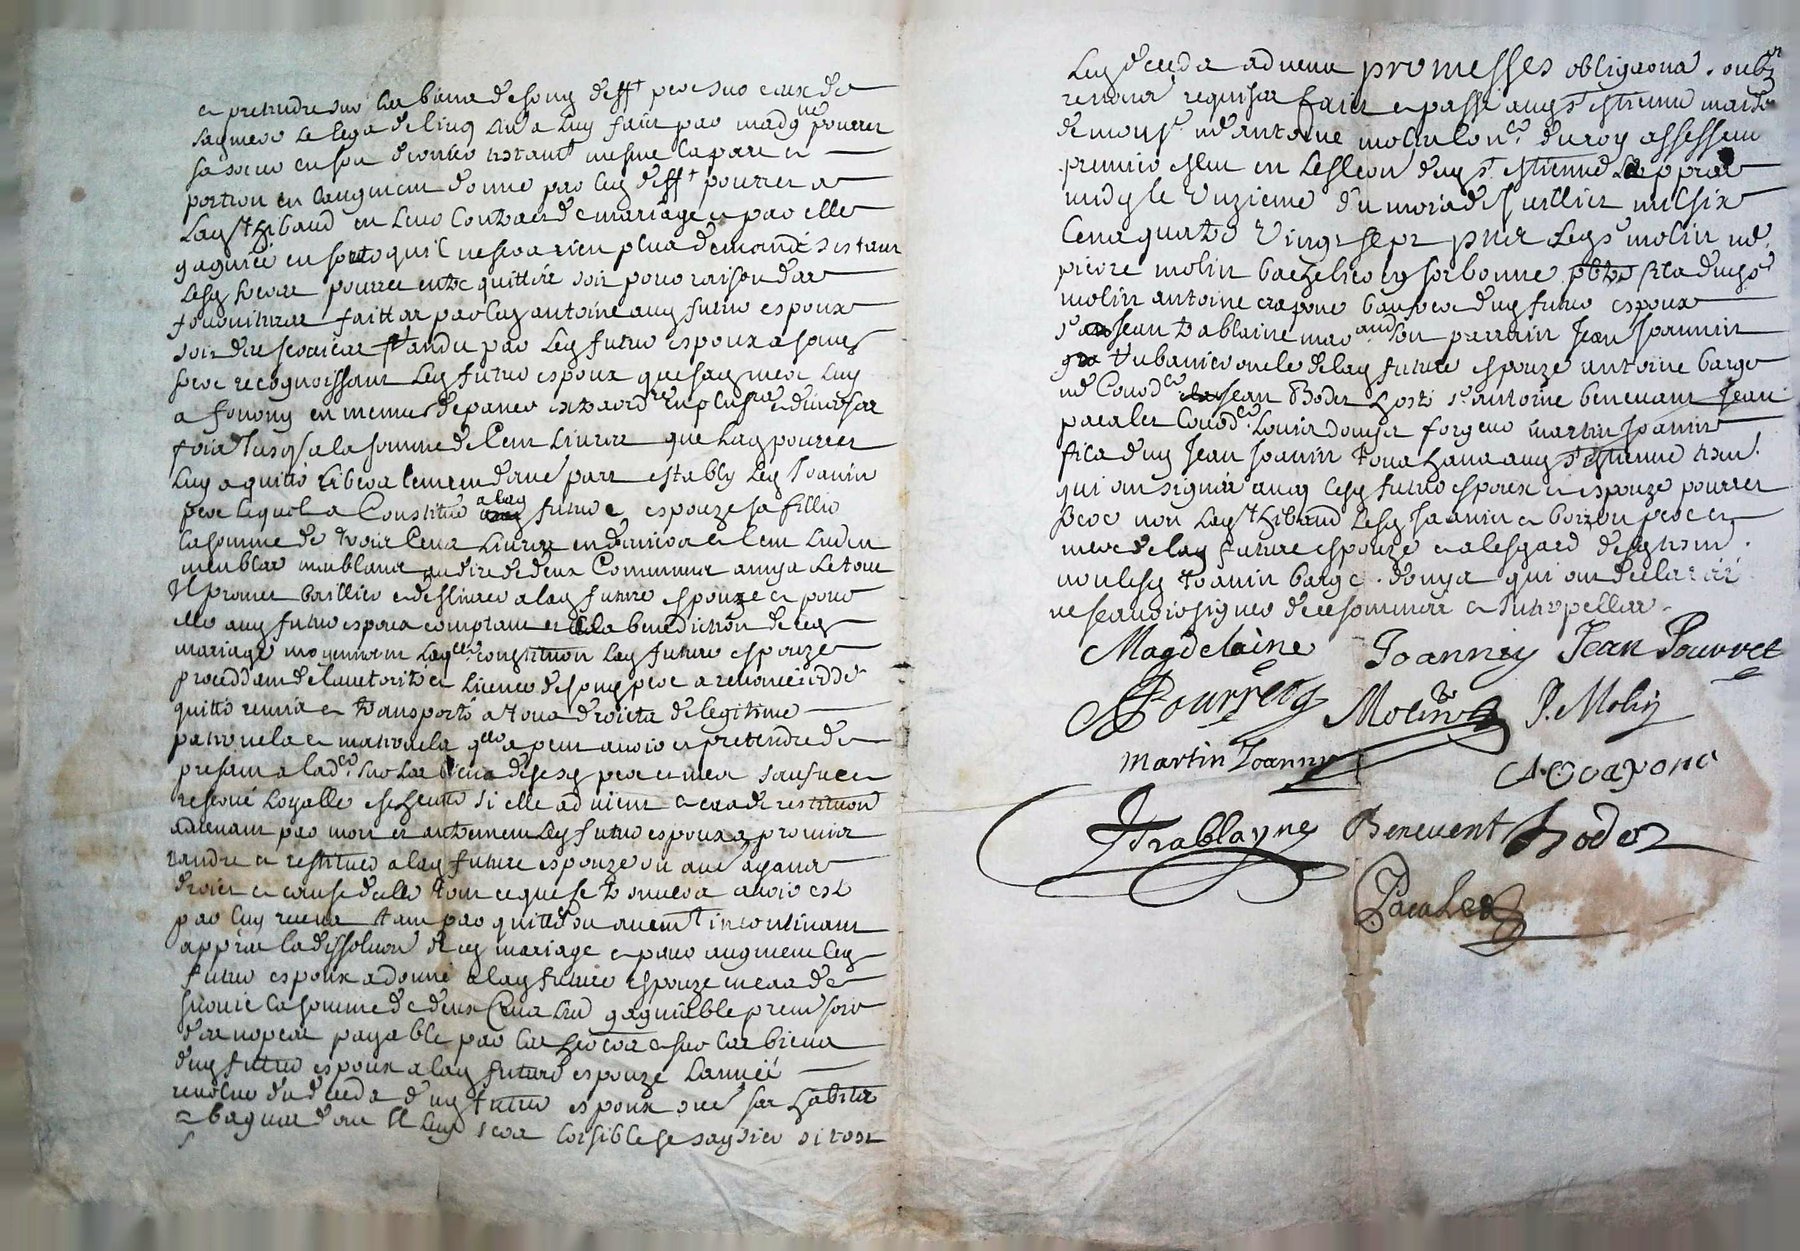 et pretendre sur les biens de son deff^t pere sur ceux de
sa mere le legs de cinq livres a luy fait par
sa soeur en son dernier testam^t mesme la part et
portion en laugment donné par led deff^t pourret a
lad Thibaud en leur contract de mariage et par elle
gagnée en sorte quil ne sera rien plus demandé
lesd pourret quitte soit pour raison des
fournitures faittes par led antoine aud futur espoux
soit des services randu par led futur espoux a sond
pere recognoissant led futur espoux que sad mere luy
a fourny en menues depances en plusieurs et diverses
fois jusq a la somme de cent livres que lad pourret
luy a quitté liberalement d'autre part estably led Joanin
pere lequel a constitué a lad future espouze sa fillie
la somme de trois cens livres en deniers et cent livres en
meubles meublant au dire de deux communs amys le tout
Il promet baillier et deslivrer a lad future espouze et pour
elle aud futur espoux comptant et a la benediction de ced
mariage moyennant lad constitution lad future espouze
procedant de lautorité et licence de sond pere a renoncé cedé
quitté remis et transporté a tous droicts de legitime
paternels et maternels quelle peut avoir et pretendre de
present a ladv^r sur les biens de sesd pere et mere sauf et
reservé loyalle escheute si elle advient et cas de restitution
advenant par mort et autrement led futur espoux a promis
randre et restituer a lad future espouze ou aux ayans
droict et cause delle tout ce que se treuvera avoir esté
par luy receus tant par quitt^ce ou autrem^t incontinant
appres la dissolution de ced mariage et pour augment led
futur espoux a donné a lad future espouze en cas de
survie la somme de deux cens livres gagniable
payable par les heoirs et sur les biens
dud futur espoux a lad future espouze lannéé
revolue du deceda dud futur espoux avec ses habits
et bagues dont il luy sera loisible se saysir si tost
led deceda advenu promesses obligaons. soubz
renons requises fait et passé aud s^t estienne maison
de mons^r m^e antoine molin con^er du roy assesseur
premier esleu en leslection dud s^t estienne appres
midy le unzieme du mois de Juillict mil six
cens quatre vingt sept p^nts led s^r molin m^e
pierre molin bachelier en sorbonne filz dud s^r
molin antoine crapone beaufrere dud futur espoux
s^r Jean trablaine mar^and son parrain Jean Joannin
tubanier oncle de lad future espouze antoine barge
m^e cord^er Jean Bodet hoste s^r antoine benevant Jean
pacalet cord^er Louis douya forgeur martin Joanin
filz dud Jean Joanin tous habans aud s^t estienne
qui ont signé avec lesd futur espoux et espouze pourret
pere non lad thibaud lesd Joanin et boizon pere et
mere de lad future espouze et a lesgard desd
non lesd Joanin barge. douya qui ont declaré
ne scavoir signer de ce sommés et Interpelles.
Magdelaine Joanney Jean Pourret
Pourret Molin P. Molin
martin Joanny A Crapone
J Trablayne Benevent Bodet
Pacalet